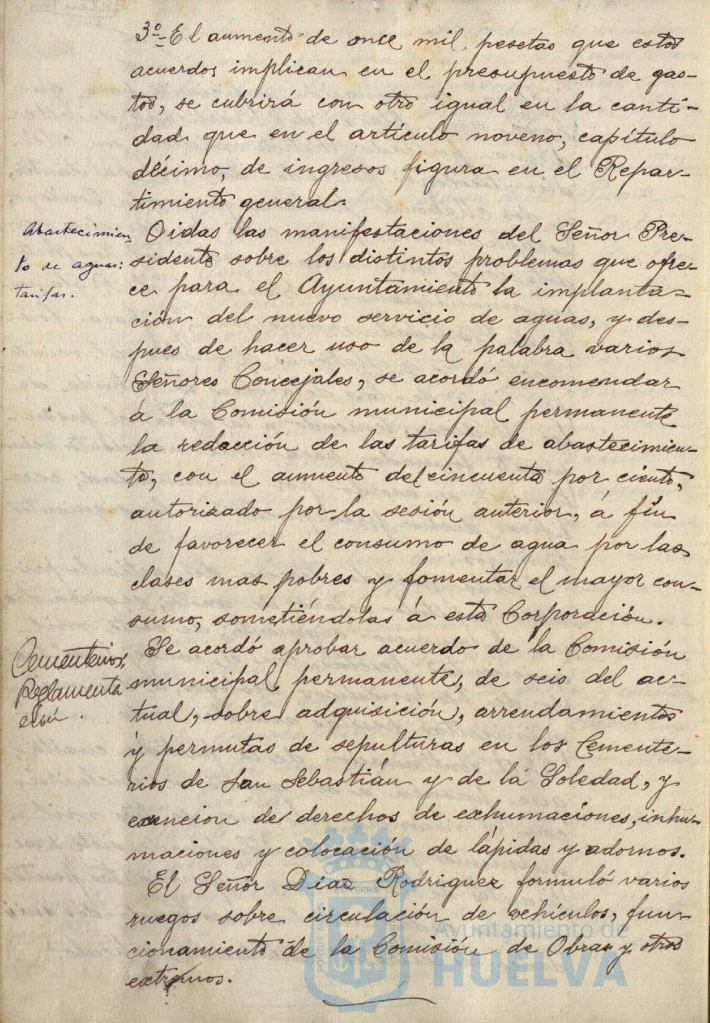 3º El aumento de once mil pesetas que estos
acuerdos implican en el presupuesto de gas-
tos, se cubrirá con otro igual en la canti-
dad que en el artículo noveno, capítulo
décimo, de ingresos figura en el Repar-
timiento general.
Abastecimien
to de aguas:
tarifas.
Oidas las manifestaciones del Señor Pre-
sidente sobre los distintos problemas que ofre-
ce para el Ayuntamiento la implanta-
ción del nuevo servicio de aguas, y des-
pues de hacer uso de la palabra varios
Señores Concejales, se acordó encomendar
á la Comisión municipal permanente
la redacción de las tarifas de abastecimien-
to, con el aumento del cincuenta por ciento,
autorizado por la sesión anterior, á fin
de favorecer el consumo de agua por las
clases mas pobres y fomentar el mayor con-
sumo, sometiéndolas á esta Corporación.
Cementerios.
Reglamenta
ción.
Se acordó aprobar acuerdo de la Comisión
municipal permanente, de seis del ac-
tual, sobre adquisición, arrendamientos
y permutas de sepulturas en los Cemente-
rios de San Sebastián y de la Soledad, y
exencion de derechos de exhumaciones, inhu-
maciones y colocación de lápidas y adornos.
El Señor Díaz Rodriguez formuló varios
ruegos sobre circulación de vehículos, fun-
cionamiento de la Comisión de Obras y otros
extremos.
Ayuntamiento de
HUELVA